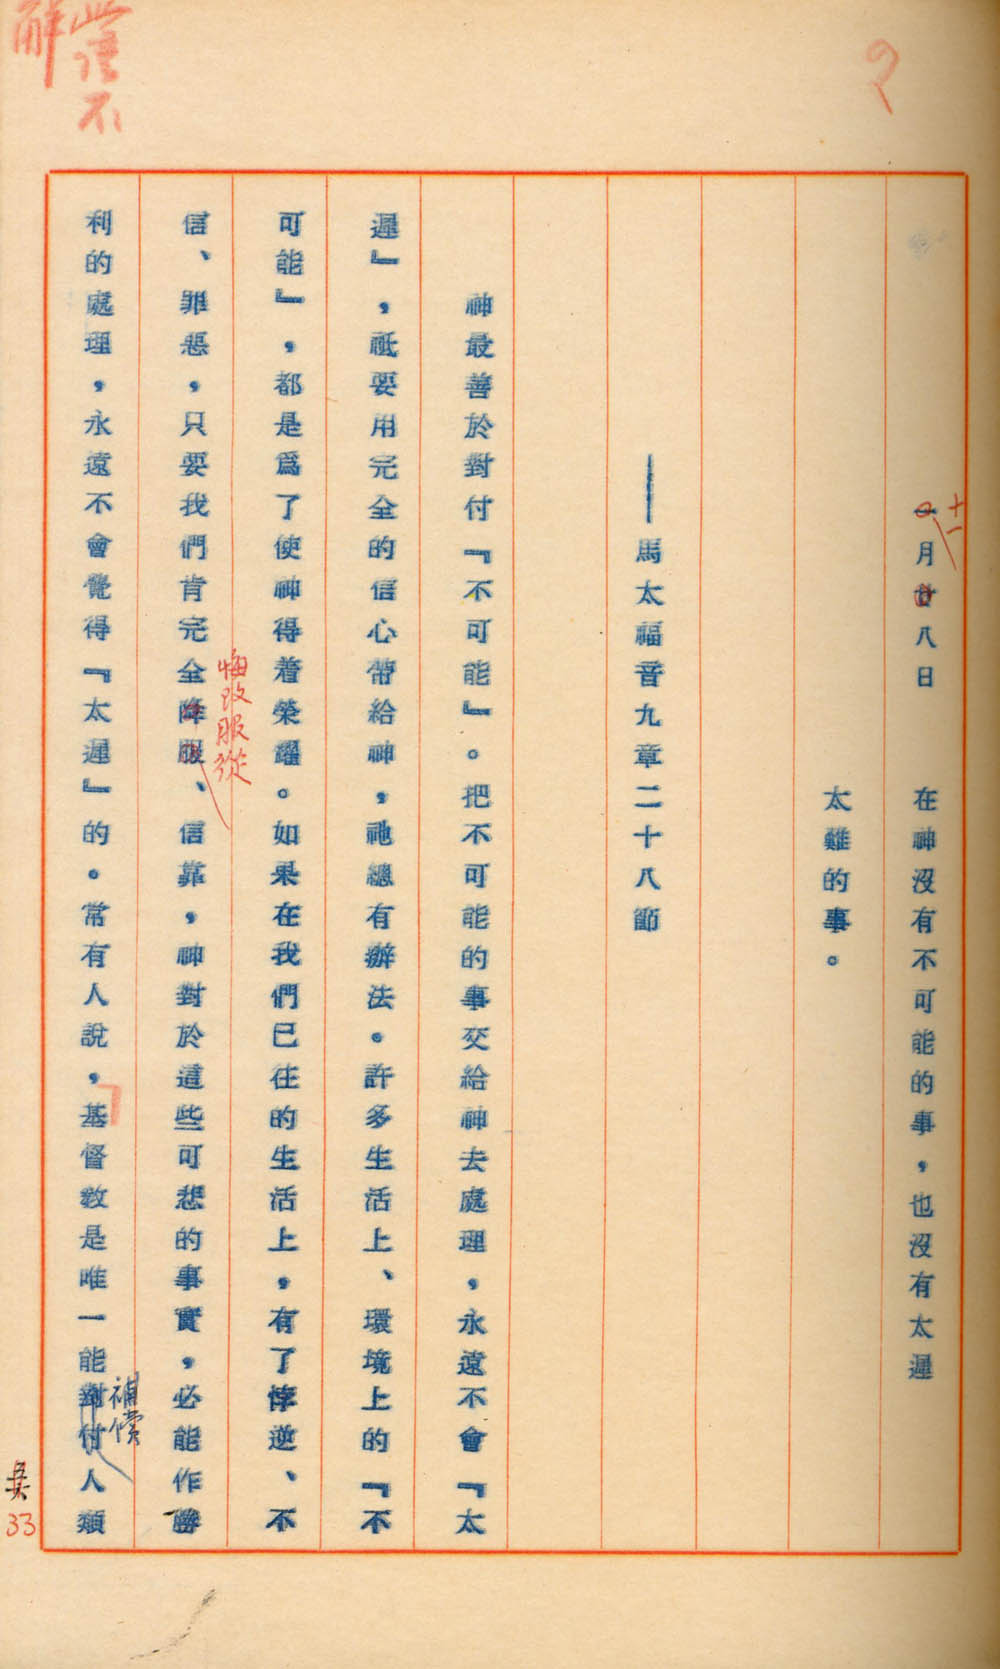 十一
一月廿八日 在神沒有不可能的事，也沒有太遲
太難的事。
——馬太福音九章二十八節
神最善於對付『不可能』。把不可能的事交給神去處理，永遠不會『太
遲』，祗要用完全的信心帶給神，祂總有辦法。許多生活上、環境上的『不
可能』，都是爲了使神得着榮耀。如果在我們已往的生活上，有了悖逆、不
悔改服從
信、罪惡，只要我們肯完全降服、信靠，神對於這些可悲的事實，必能作勝
補償
利的處理，永遠不會覺得『太遲』的。常有人說，基督教是唯一能對付人類
吳
33